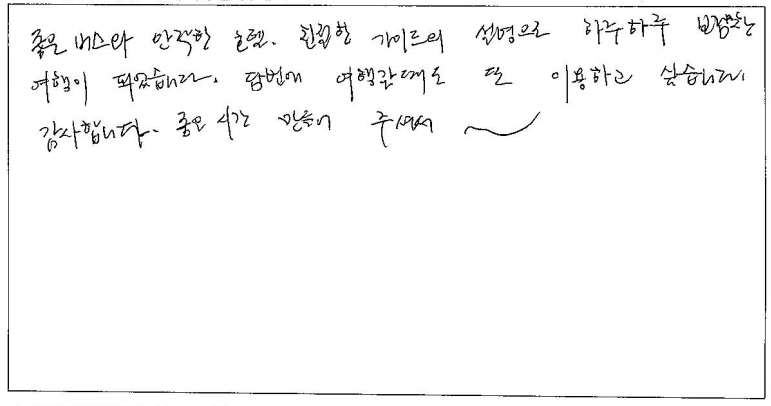 좋은 버스와 안락한 호텔. 친절한 가이드의 설명으로 하루하루 보람있는
여행이 되었습니다. 담번에 여행갈때도 또 이용하고 싶습니다.
감사합니다. 좋은 시간 만들어 주셔서